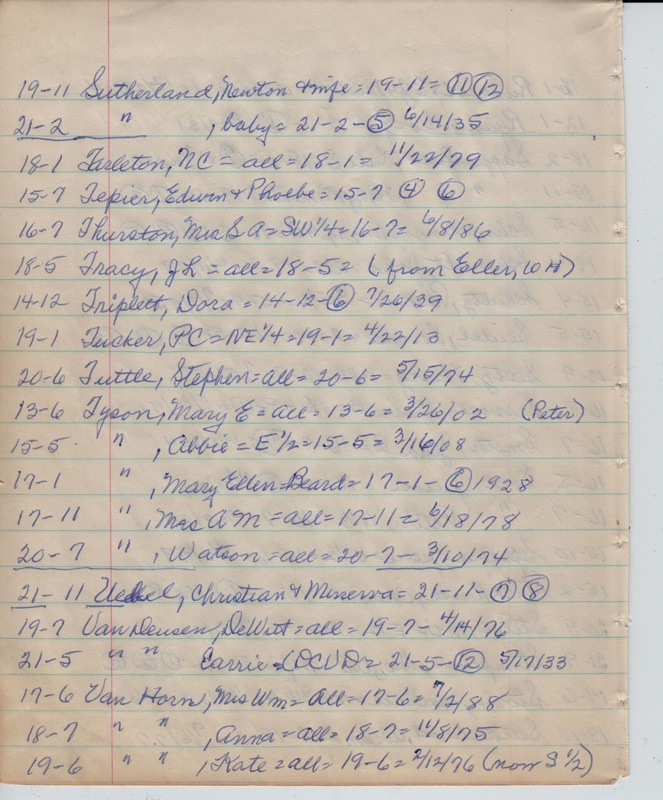 19-11 Sutherland, Newton & wife = 19-11 = ⑪ ⑫
21-2 " , baby = 21-2-⑤ 6/14/35
18-1 Tarleton, NC = all = 18-1 = 11/22/79
15-7 Tepier, Edwin & Phoebe = 15-7 ④ ⑥
16-7 Thurston, Mrs S A = SW 1/4 = 16-7 = 6/8/86
18-5 Tracy, J L = all = 18-5 = (from Eller, W H)
14-12 Triplett, Dora = 14-12-⑥ 7/26/39
19-1 Tucker, PC = NE 1/4 = 19-1 = 4/22/13
20-6 Tuttle, Stephen = all = 20-6 = 5/15/74
13-6 Tyson, Mary E = all = 13-6 = 3/26/02 (Peter)
15-5 " , Abbie = E 1/2 = 15-5 = 3/16/08
17-1 " , Mary Ellen Beard = 17-1-⑥ 1928
17-11 " , Mrs A M = all = 17-11 = 6/18/78
20-7 " , Watson = all = 20-7- 3/10/74
21-11 Uebel, Christian & Minerva = 21-11-⑦ ⑧
19-7 Van Deusen, DeWitt = all = 19-7- 4/14/76
21-5 " " Carrie = (DCVD = 21-5-⑫ 5/17/33
17-6 Van Horn, Mrs Wm = all = 17-6 = 7/2/88
18-7 " " , Anna = all = 18-7 = 11/8/75
19-6 " " , Kate = all = 19-6 = 2/12/76 (now S 1/2)